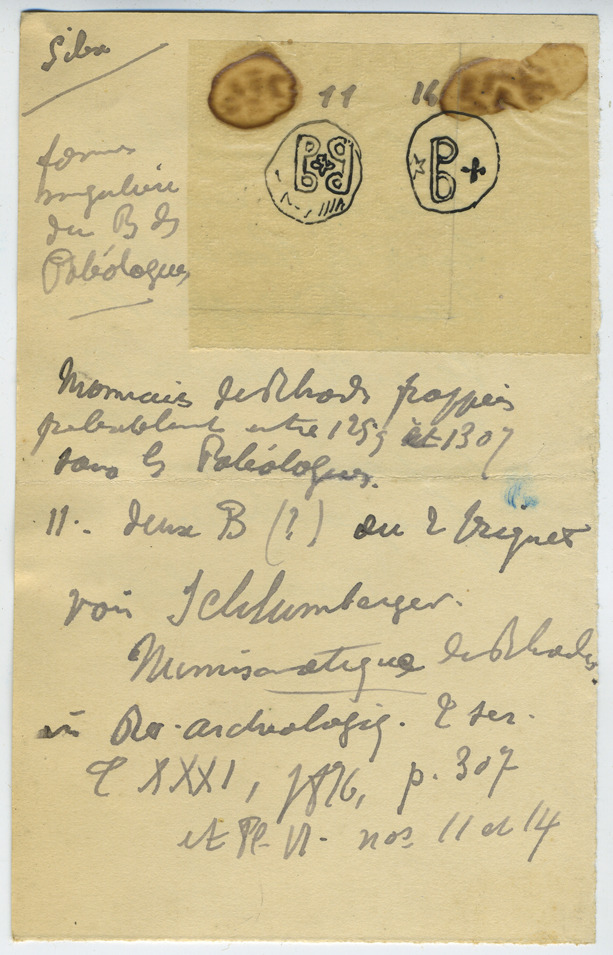 11 14
formes
du B des
Paléologues
Monnaies de Rhodes frappées
probablement entre 1259 et 1307
sous les Paléologues.
11. deux B (?) ou 2 briquets
voir Schlumberger.
Numismatique de Rhodes.
in Rev. archéologiq. 2 ser.
t XXXI, 1876, p. 307
et Pl. VI. nos 11 et 14